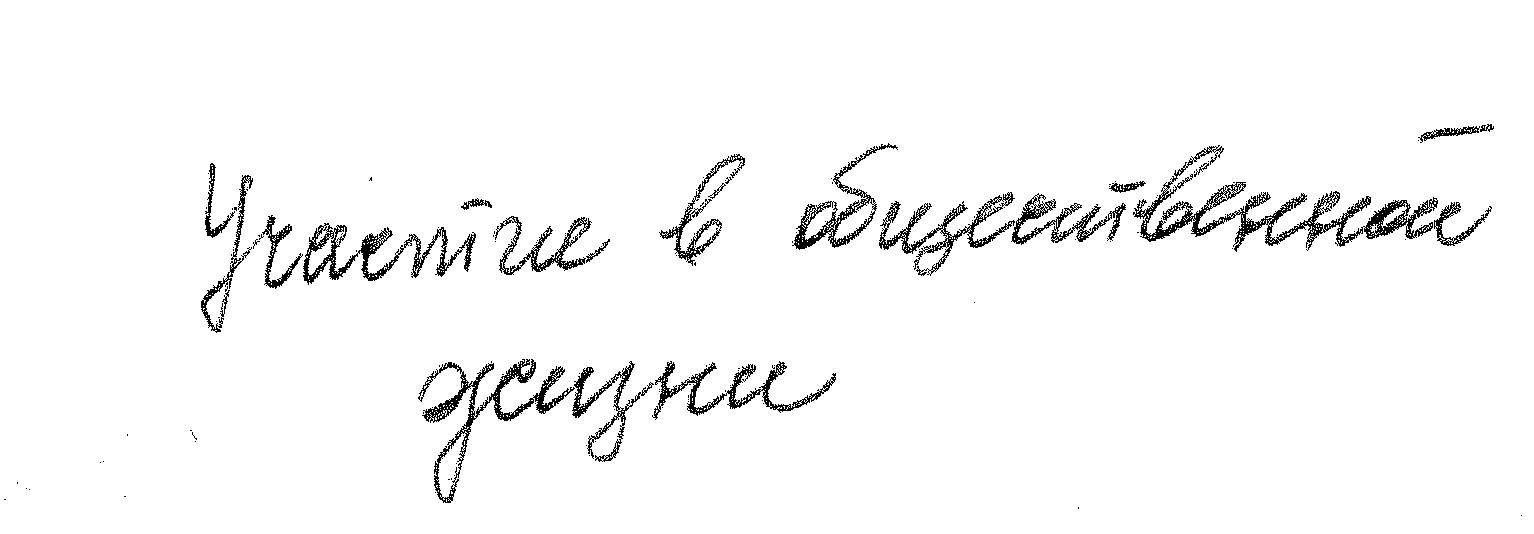 Участие в общественной
жизни